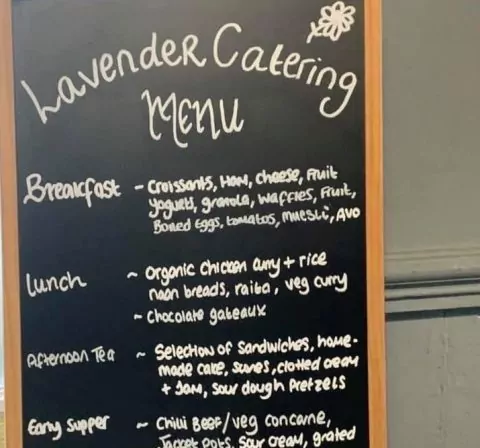 Lavender Catering
MENU
Breakfast - Croissants, Ham, Cheese, Fruit
Yogurts, granola, Waffles, Fruit,
Boiled Eggs, tomatos, Muesli, AVO
Lunch ~ Organic Chicken curry + rice
naan breads, raita, veg curry
~ Chocolate gateaux
Afternoon Tea ~ Selection of Sandwiches, home-
made cake, scones, clotted cream
+ Jam, Sour dough Pretzels
Early Supper ~ Chilli Beef/veg concarne,
Jacket Pots, Sour cream, grated